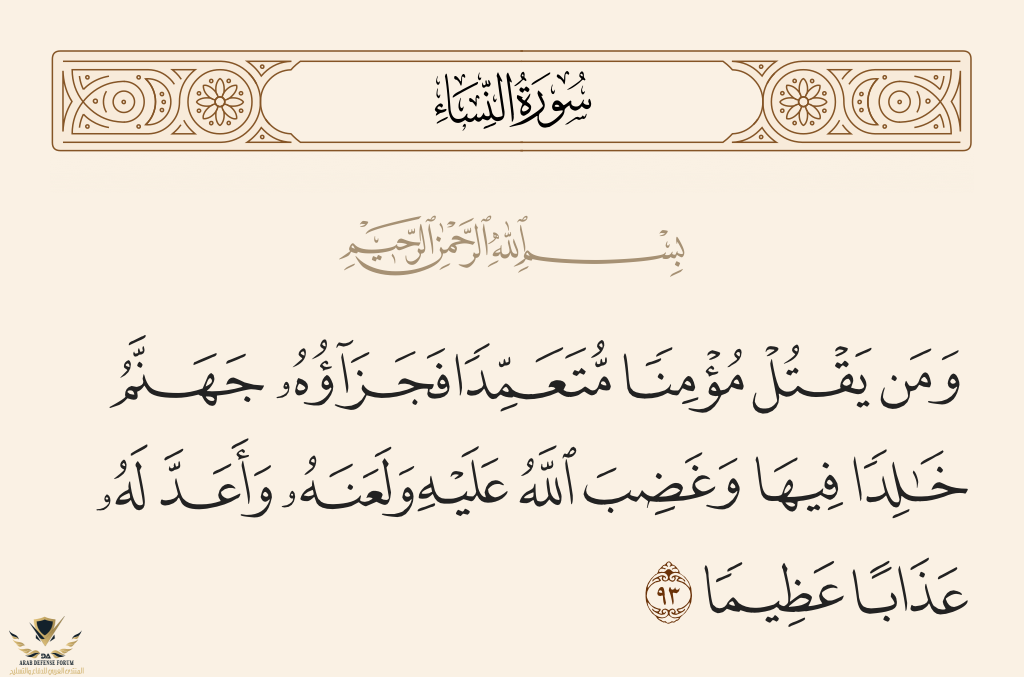 سُورَةُ النِّسَاءِ
بِسْمِ ٱللَّهِ ٱلرَّحْمَٰنِ ٱلرَّحِيمِ
وَمَن يَقْتُلْ مُؤْمِنًا مُّتَعَمِّدًا فَجَزَآؤُهُۥ جَهَنَّمُ
خَٰلِدًا فِيهَا وَغَضِبَ ٱللَّهُ عَلَيْهِ وَلَعَنَهُۥ وَأَعَدَّ لَهُۥ
عَذَابًا عَظِيمًا ٩٣
DA
ARAB DEFENSE FORUM
المنتدى العربي للدفاع والتسليح